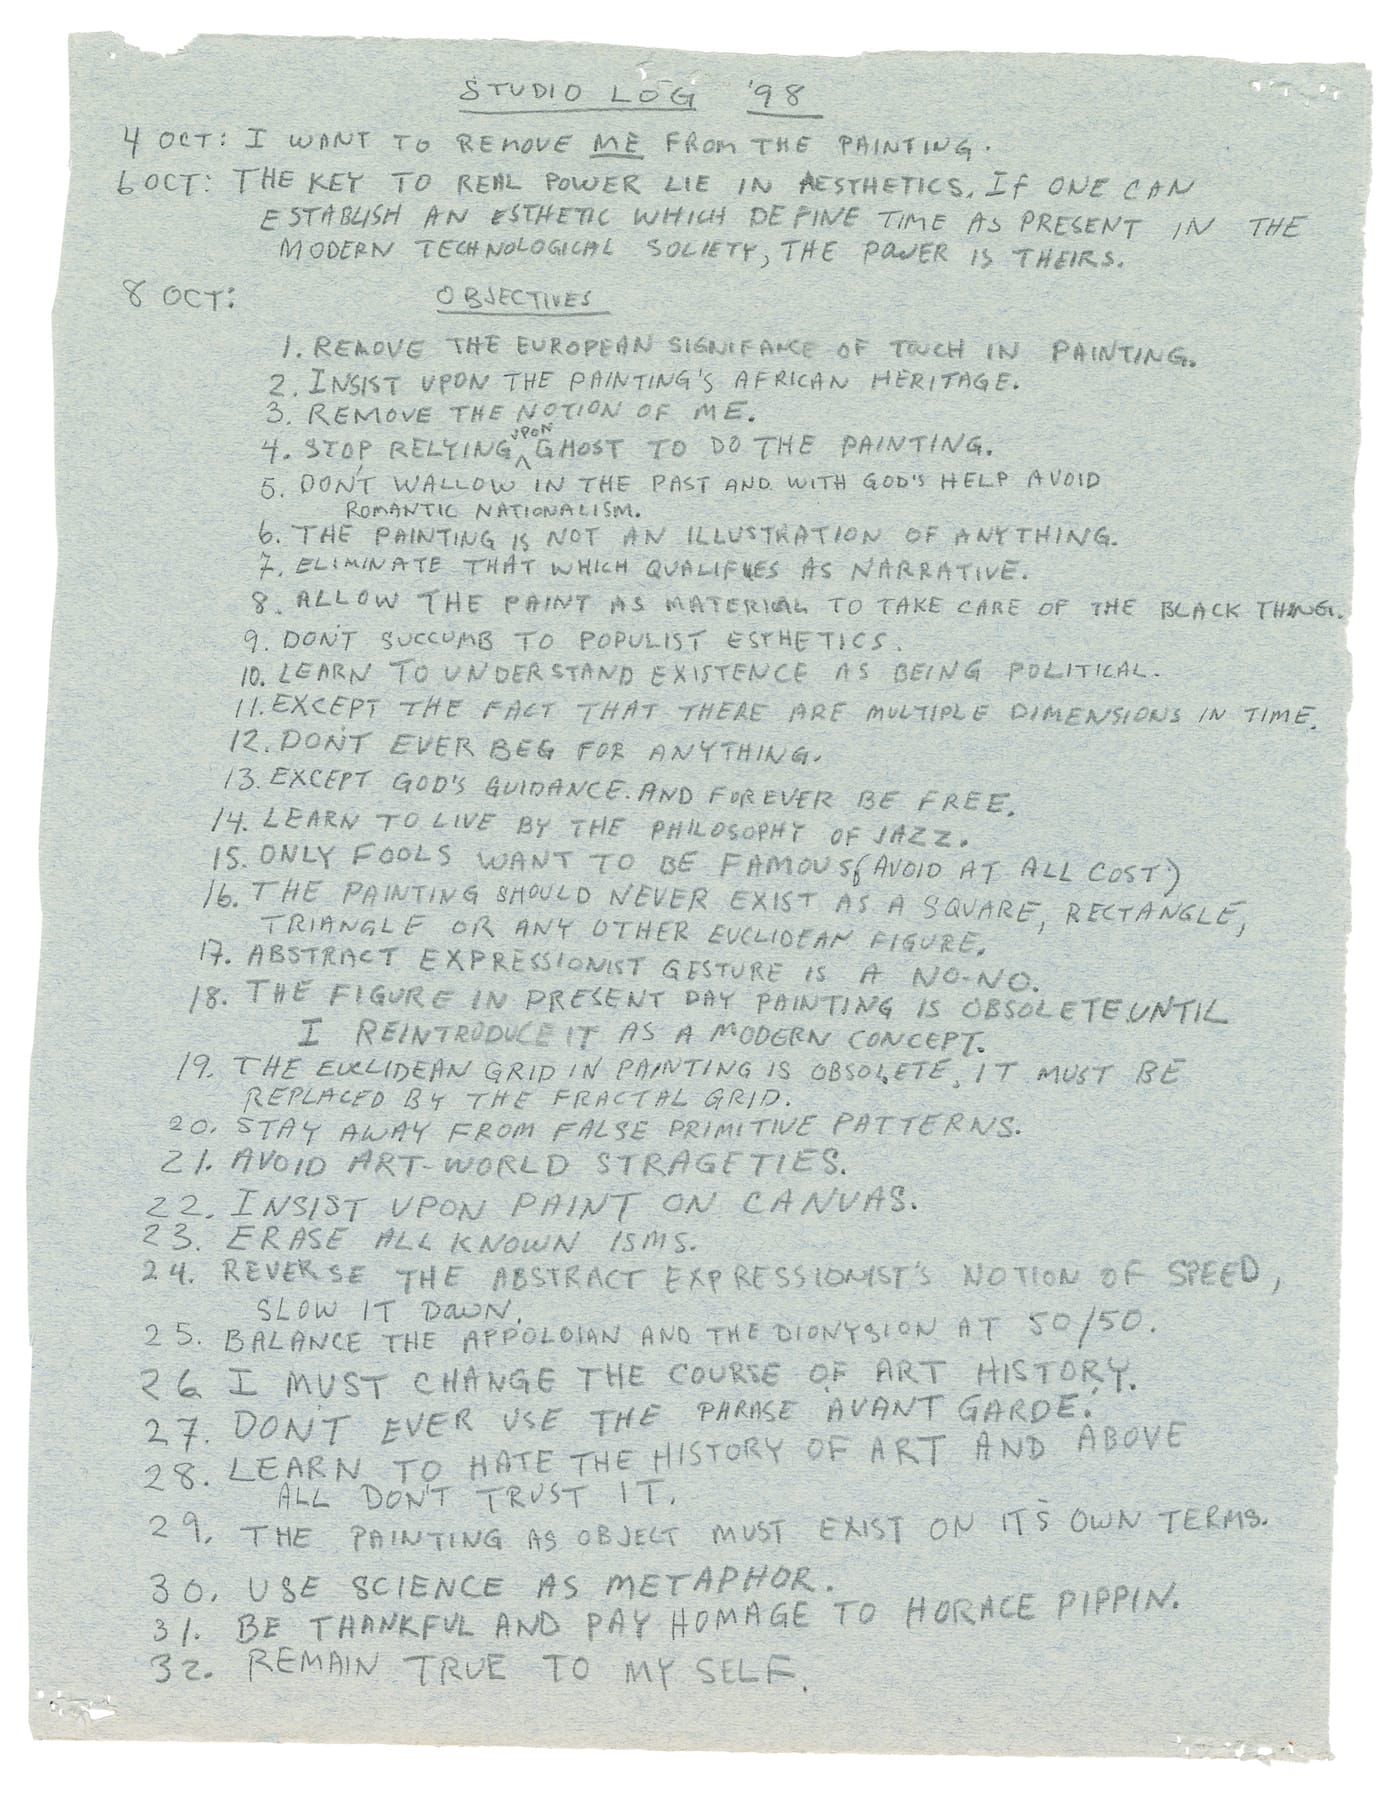 STUDIO LOG '98
4 OCT: I WANT TO REMOVE ME FROM THE PAINTING.
6 OCT: THE KEY TO REAL POWER LIE IN AESTHETICS. IF ONE CAN
ESTABLISH AN ESTHETIC WHICH DEFINE TIME AS PRESENT IN THE
MODERN TECHNOLOGICAL SOCIETY, THE POWER IS THEIRS.
8 OCT: OBJECTIVES
1. REMOVE THE EUROPEAN SIGNIFANCE OF TOUCH IN PAINTING.
2. INSIST UPON THE PAINTING'S AFRICAN HERITAGE.
3. REMOVE THE NOTION OF ME.
4. STOP RELYING UPON GHOST TO DO THE PAINTING.
5. DON'T WALLOW IN THE PAST AND WITH GOD'S HELP AVOID
ROMANTIC NATIONALISM.
6. THE PAINTING IS NOT AN ILLUSTRATION OF ANYTHING.
7. ELIMINATE THAT WHICH QUALIFIES AS NARRATIVE.
8. ALLOW THE PAINT AS MATERIAL TO TAKE CARE OF THE BLACK THING.
9. DON'T SUCCUMB TO POPULIST ESTHETICS.
10. LEARN TO UNDERSTAND EXISTENCE AS BEING POLITICAL.
11. EXCEPT THE FACT THAT THERE ARE MULTIPLE DIMENSIONS IN TIME.
12. DON'T EVER BEG FOR ANYTHING.
13. EXCEPT GOD'S GUIDANCE. AND FOREVER BE FREE.
14. LEARN TO LIVE BY THE PHILOSOPHY OF JAZZ.
15. ONLY FOOLS WANT TO BE FAMOUS (AVOID AT ALL COST)
16. THE PAINTING SHOULD NEVER EXIST AS A SQUARE, RECTANGLE,
TRIANGLE OR ANY OTHER EUCLIDEAN FIGURE.
17. ABSTRACT EXPRESSIONIST GESTURE IS A NO-NO.
18. THE FIGURE IN PRESENT DAY PAINTING IS OBSOLETE UNTIL
I REINTRODUCE IT AS A MODERN CONCEPT.
19. THE EUCLIDEAN GRID IN PAINTING IS OBSOLETE, IT MUST BE
REPLACED BY THE FRACTAL GRID.
20. STAY AWAY FROM FALSE PRIMITIVE PATTERNS.
21. AVOID ART-WORLD STRAGETIES.
22. INSIST UPON PAINT ON CANVAS.
23. ERASE ALL KNOWN ISMS.
24. REVERSE THE ABSTRACT EXPRESSIONIST'S NOTION OF SPEED,
SLOW IT DOWN.
25. BALANCE THE APPOLOIAN AND THE DIONYSION AT 50/50.
26 I MUST CHANGE THE COURSE OF ART HISTORY.
27. DON'T EVER USE THE PHRASE 'AVANT GARDE.'
28. LEARN TO HATE THE HISTORY OF ART AND ABOVE
ALL DON'T TRUST IT.
29. THE PAINTING AS OBJECT MUST EXIST ON IT'S OWN TERMS.
30. USE SCIENCE AS METAPHOR.
31. BE THANKFUL AND PAY HOMAGE TO HORACE PIPPIN.
32. REMAIN TRUE TO MY SELF.